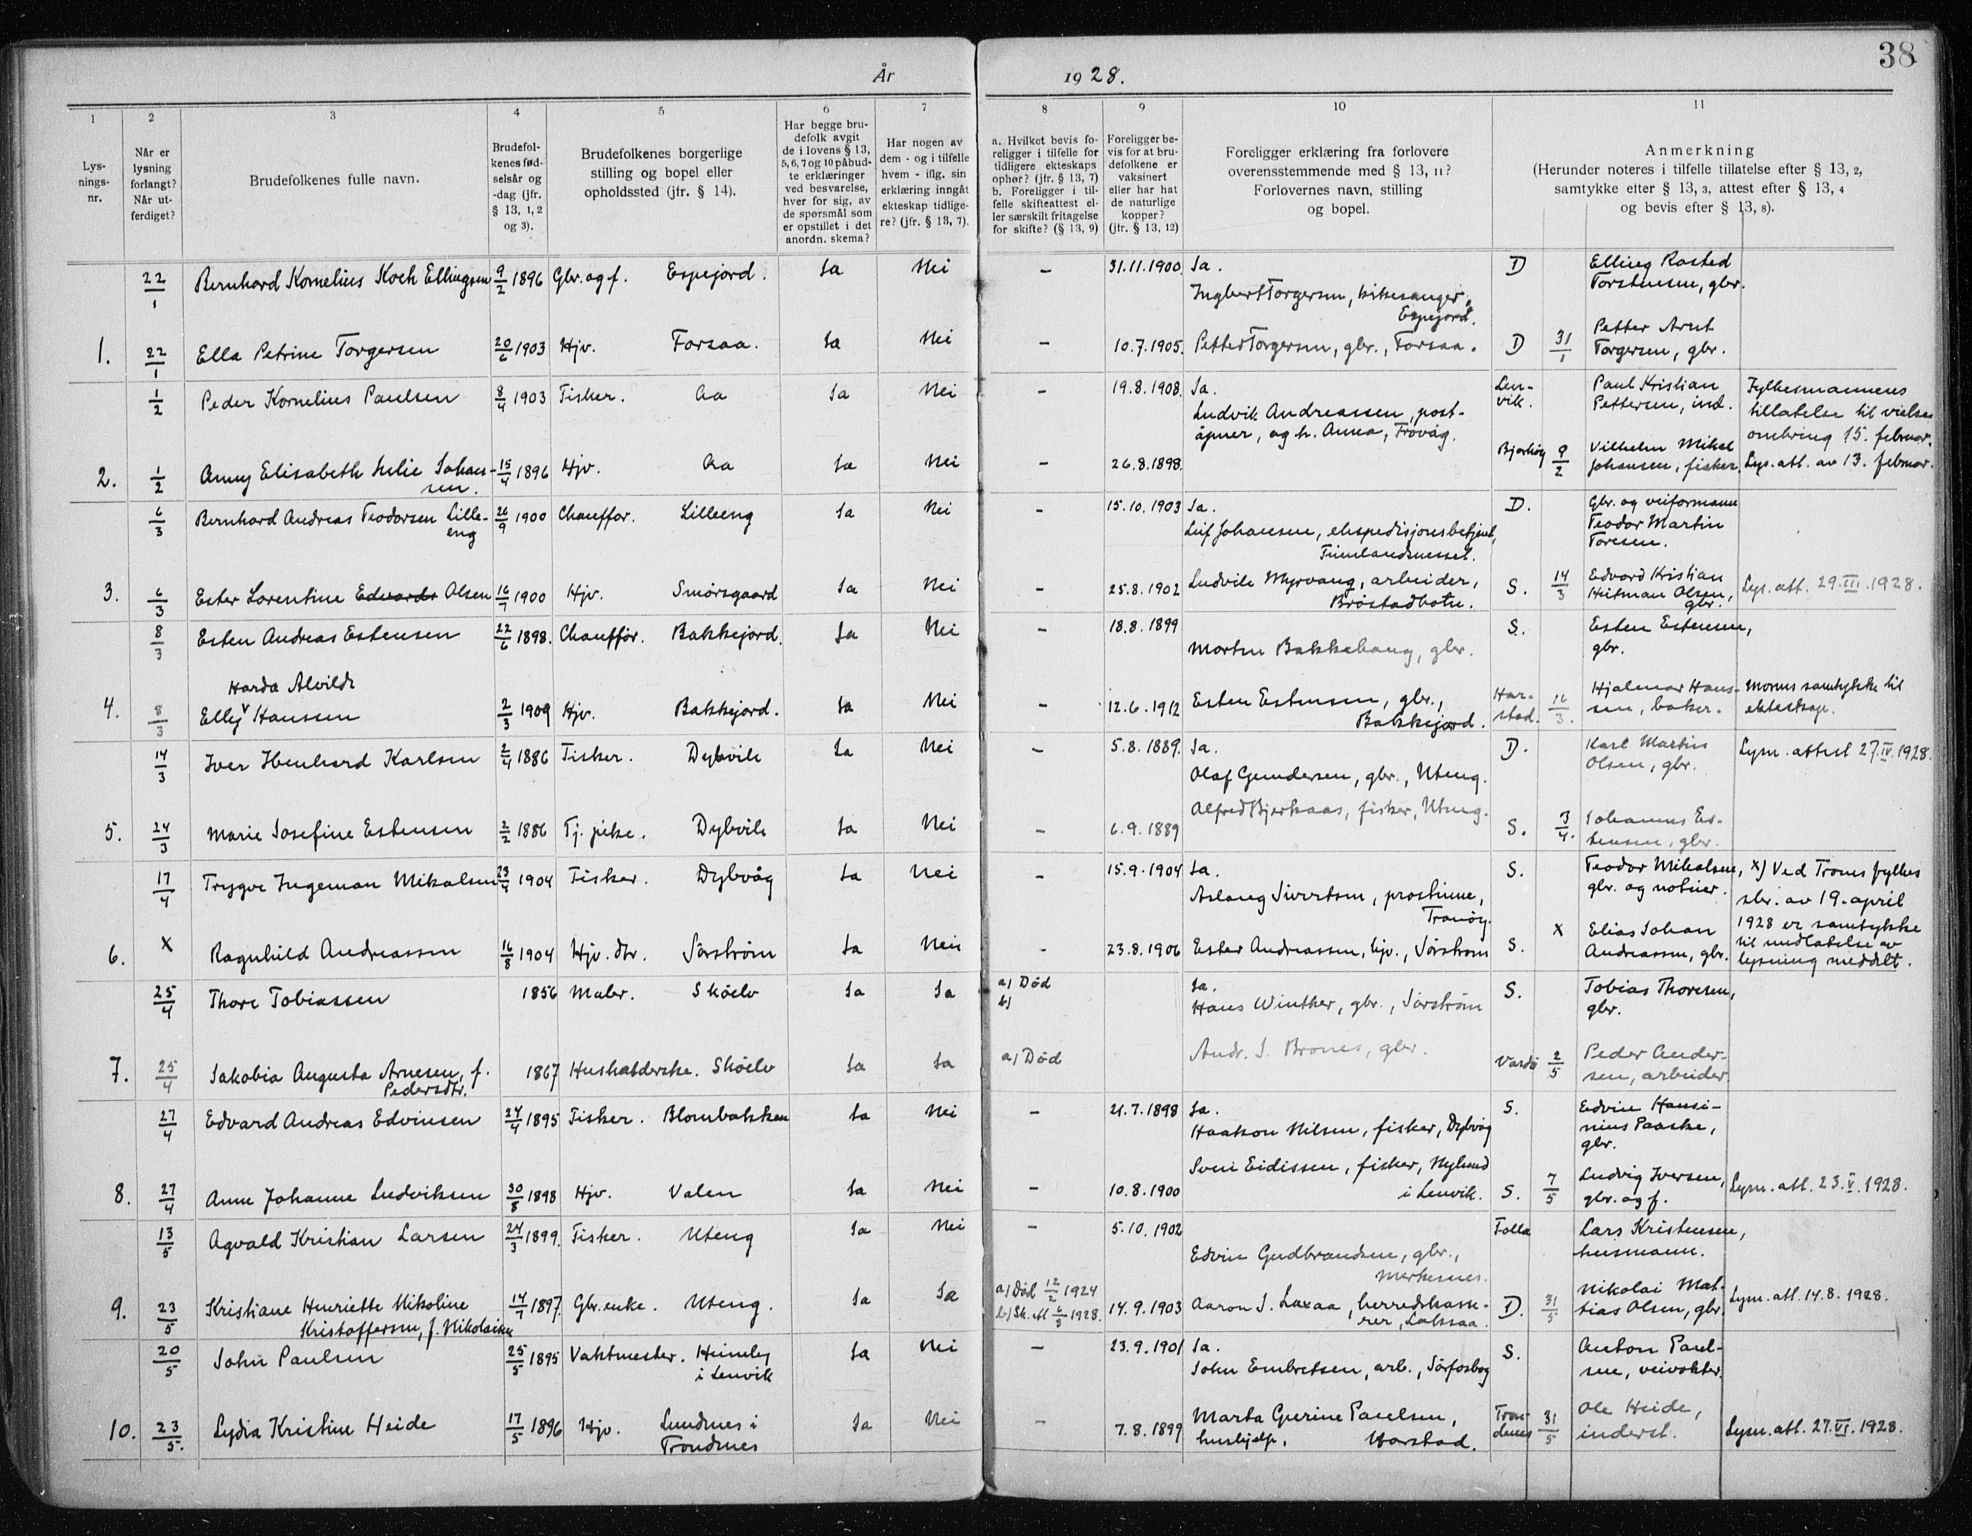 38
År 1928.
1 2 3 4 5 6 7 8 9 10 11
Lys-
nings-
nr.
Når er
lysning
forlangt?
Når ut-
ferdiget?
Brudefolkenes fulle navn.
Brudefol-
kenes fød-
selsår og
-dag (jfr.
§ 13, 1, 2
og 3).
Brudefolkenes borgerlige
stilling og bopel eller
opholdssted (jfr. § 14).
Har begge bru-
defolk avgit
de i lovens § 13,
5, 6, 7 og 10 påbud-
te erklæringer
ved besvarelse,
hver for sig, av
de spørsmål som
er opstillet i det
anordn. skema?
Har nogen av
dem - og i tilfelle
hvem - iflg. sin
erklæring inngåt
ekteskap tidlige-
re? (jfr. § 13, 7).
a. Hvilket bevis fo-
religger i tilfelle for
tidligere ekteskaps
ophør? (jfr. § 13, 7)
b. Foreligger i til-
felle skifteattest el-
ler særskilt fritagelse
for skifte? (§ 13, 9)
Foreligger be-
vis for at bru-
defolkene er
vaksinert
eller har hat
de naturlige
kopper?
(jfr. § 13, 12)
Foreligger erklæring fra forlovere
overensstemmende med § 13, 11?
Forlovernes navn, stilling
og bopel.
Anmerkning
(Herunder noteres i tilfelle tillatelse efter § 13, 2,
samtykke efter § 13, 3, attest efter § 13, 4
og bevis efter § 13, 8).
22/1 Bernhard Kornelius Koch Ellingsen 9/2 1896 Gbr. og f. Espejord. Ja Nei — 31.11.1900. Ja. D Elling Rasted
Torstensen, gbr.
Ingbert Torgersen, kirkesanger,
Espejord.
1. 22/1 Ella Petrine Torgersen 20/6 1903 Hjv. Forsaa. Ja Nei — 10.7.1905. Petter Torgersen, gbr., Forsaa. D 31/1 Petter Arnt
Torgersen, gbr.
1/2 Peder Kornelius Paulsen 8/4 1903 Fisker. Aa Ja Nei — 19.8.1908. Ja. Len-
vik. Paul Kristian
Pettersen, ind. Fylkesmannens
tillatelse til vielse
omkring 15. februar.
Ludvik Andreassen, post-
åpner, og h. Anna, Frovåg.
2. 1/2 Anny Elisabeth Julie Johan-
sen. 15/4 1896 Hjv. Aa Ja Nei — 26.8.1898. 9/2 Vilhelm Mikal
Johansen, fisker. Lys. att. av 13. februar.
6/3 Bernhard Andreas Teodorsen Lille-
eng 26/9 1900 Chauffør. Lilleeng Ja Nei — 15.10.1903 Ja. D. Gbr. og veiformann
Teodor Martin
Toresen.
Leif Johansen, ekspedisjonsbetjent,
Finnlandsnesset.
3. 6/3 Ester Lorentine Edvards Olsen 16/7 1900 Hjv. Smörsgaard Ja Nei — 25.8.1902 Ludvik Myrvang, arbeider,
Bröstadbotn. S. 14/3 Edvard Kristian
Heitman Olsen,
gbr. Lys. att. 29.III.1928.
8/3 Esten Andreas Estensen 22/6 1898. Chauffør. Bakkejord. Ja Nei — 18.8.1899 S. Esten Estensen,
gbr.
Morten Bakkehaug, gbr.
Harda Alvilde
4. 8/3 Elly Hansen 2/3 1909 Hjv. Bakkejord. Ja Nei — 12.6.1912 Esten Estensen, gbr.,
Bakkejord. Har-
stad. 16/3. Hjalmar Hans-
sen, baker. Morens samtykke til
ekteskap.
14/3 Iver Ibenhard Karlsen 2/4 1886 Fisker. Dybvik Ja Nei — 5.8.1889. Ja. D. Karl Martin
Olsen, gbr. Lysn. attest 27.IV.1928.
Olaf Gundersen, gbr., Uteng.
Alfred Bjerkaas, fisker, Uteng.
5. 24/3 Marie Josefine Estensen 2/2 1886 Tj. pike. Dybvik Ja Nei — 6.9.1889 S. 3/4. Johannes Es-
tensen, gbr.
17/4 Trygve Ingeman Mikalsen 23/4 1904 Fisker. Dybvåg Ja Nei — 15.9.1904 Ja. S. Teodor Mikalsen,
gbr. og notbier. x) Ved Troms fylkes
skr. av 19. april
1928 er samtykke
til undlatelse av
lysning meddelt.
Aslaug Sivertsen, prostinne,
Tranöy.
6. x Ragnhild Andreassen 16/8 1904 Hjv. dtr. Sörström Ja Nei - 23.8.1906 Ester Andreassen, hjv., Sörström S. x Elias Johan
Andreassen, gbr.
25/4 Thore Tobiassen 1856 Maler. Sköelv Ja Ja a) Död
b) Ja. S. Tobias Thoresen,
gbr.
Hans Winther, gbr., Sörström
7. 25/4 Jakobia Augusta Arnesen, f.
Pedersdtr. 1867 Husholderske. Sköelv Ja Ja a) Död Andr. J. Brones, gbr. Vardö 2/5 Peder Ander-
sen, arbeider
27/4 Edvard Andreas Edvinsen 24/4 1895 Fisker. Blombakken Ja Nei — 21.7.1898 Ja. S. Edvin Hansi-
nius Paaske,
gbr.
Haakon Nilsen, fisker, Dybvåg
8. 27/4 Anne Johanne Ludviksen 30/8 1898 Hjv. Valen Ja Nei — 10.8.1900 Svein Eidissen, fisker, Nylund
i Lenvik. S. 7/5 Ludvig Iversen,
gbr. og f. Lysn. att. 23.V.1928.
13/5 Agvald Kristian Larsen 24/3 1899. Fisker. Uteng Ja Nei — 5.10.1902 Folla Lars Kristensen,
husmann.
Edvin Gudbrandsen, gbr.,
Merkesnes.
9. 23/5 Kristiane Henriette Nikoline
Kristoffersen, f. Nikolaisen 14/7 1897. Gbr. enke. Uteng. Ja Ja a) Död 12/2 1924
b) Sk. att 6/3 1928. 14.9.1903 Aaron J. Laxaa, herredskasse-
rer, Laksaa. D. 31/5 Nikolai Mat-
tias Olsen, gbr. Lysn. att. 14.8.1928.
20/5 John Paulsen 25/5 1895 Vaktmester. Heimly
i Lenvik Ja Nei — 23.9.1901 Ja. S. Anton Paul-
sen, veivokter.
John Embretsen, arb., Sörfosbog
10. 23/5. Lydia Kristine Heide 17/5 1896 Hjv. Lundnes i
Trondnes Ja Nei — 7.8.1899 Marta Gurine Paulsen,
hushjelp, Harstad. Tron-
denes 31/5 Ole Heide,
inderst. Lysn. att. 27.VI.1928.